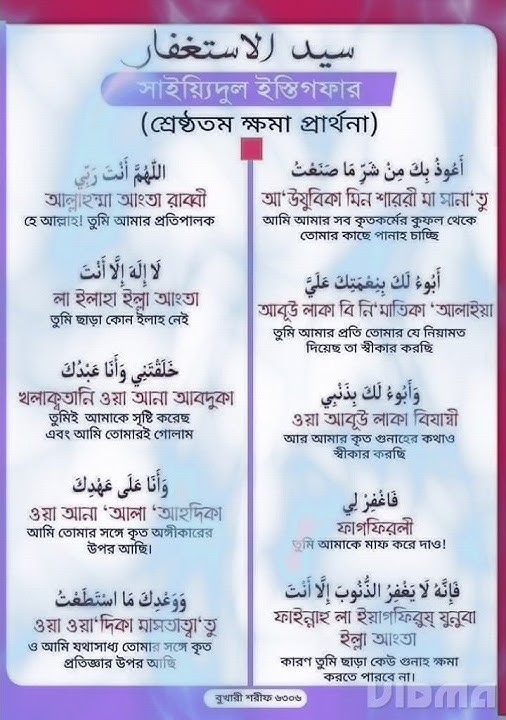 سيد الاستغفار
সাইয়্যিদুল ইস্তিগফার
(শ্রেষ্ঠতম ক্ষমা প্রার্থনা)
اللَّهُمَّ أَنْتَ رَبِّي
আল্লাহুম্মা আংতা রাব্বী
হে আল্লাহ! তুমি আমার প্রতিপালক
لَا إِلَهَ إِلَّا أَنْتَ
লা ইলাহা ইল্লা আংতা
তুমি ছাড়া কোন ইলাহ নেই
خَلَقْتَنِي وَأَنَا عَبْدُكَ
খলাক্বতানি ওয়া আনা আবদুকা
তুমিই আমাকে সৃষ্টি করেছ
এবং আমি তোমারই গোলাম
وَأَنَا عَلَى عَهْدِكَ
ওয়া আনা ‘আলা ‘আহদিকা
আমি তোমার সঙ্গে কৃত অঙ্গীকারের
উপর আছি।
وَوَعْدِكَ مَا اسْتَطَعْتُ
ওয়া ওয়া‘দিকা মাসতাত্বা‘তু
ও আমি যথাসাধ্য তোমার সঙ্গে কৃত
প্রতিজ্ঞার উপর আছি
أَعُوذُ بِكَ مِنْ شَرِّ مَا صَنَعْتُ
আ‘উযুবিকা মিন শাররী মা সানা‘তু
আমি আমার সব কৃতকর্মের কুফল থেকে
তোমার কাছে পানাহ চাচ্ছি
أَبُوءُ لَكَ بِنِعْمَتِكَ عَلَيَّ
আবূউ লাকা বি নি‘মাতিকা ‘আলাইয়া
তুমি আমার প্রতি তোমার যে নিয়ামত
দিয়েছ তা স্বীকার করছি
وَأَبُوءُ لَكَ بِذَنْبِي
ওয়া আবূউ লাকা বিযাম্বী
আর আমার কৃত গুনাহের কথাও
স্বীকার করছি
فَاغْفِرْ لِي
ফাগফিরলী
তুমি আমাকে মাফ করে দাও!
فَإِنَّهُ لَا يَغْفِرُ الذُّنُوبَ إِلَّا أَنْتَ
ফাইন্নাহু লা ইয়াগফিরুয্ যুনুবা
ইল্লা আংতা
কারণ তুমি ছাড়া কেউ গুনাহ ক্ষমা
করতে পারবে না।
বুখারী শরীফ ৬৩০৬